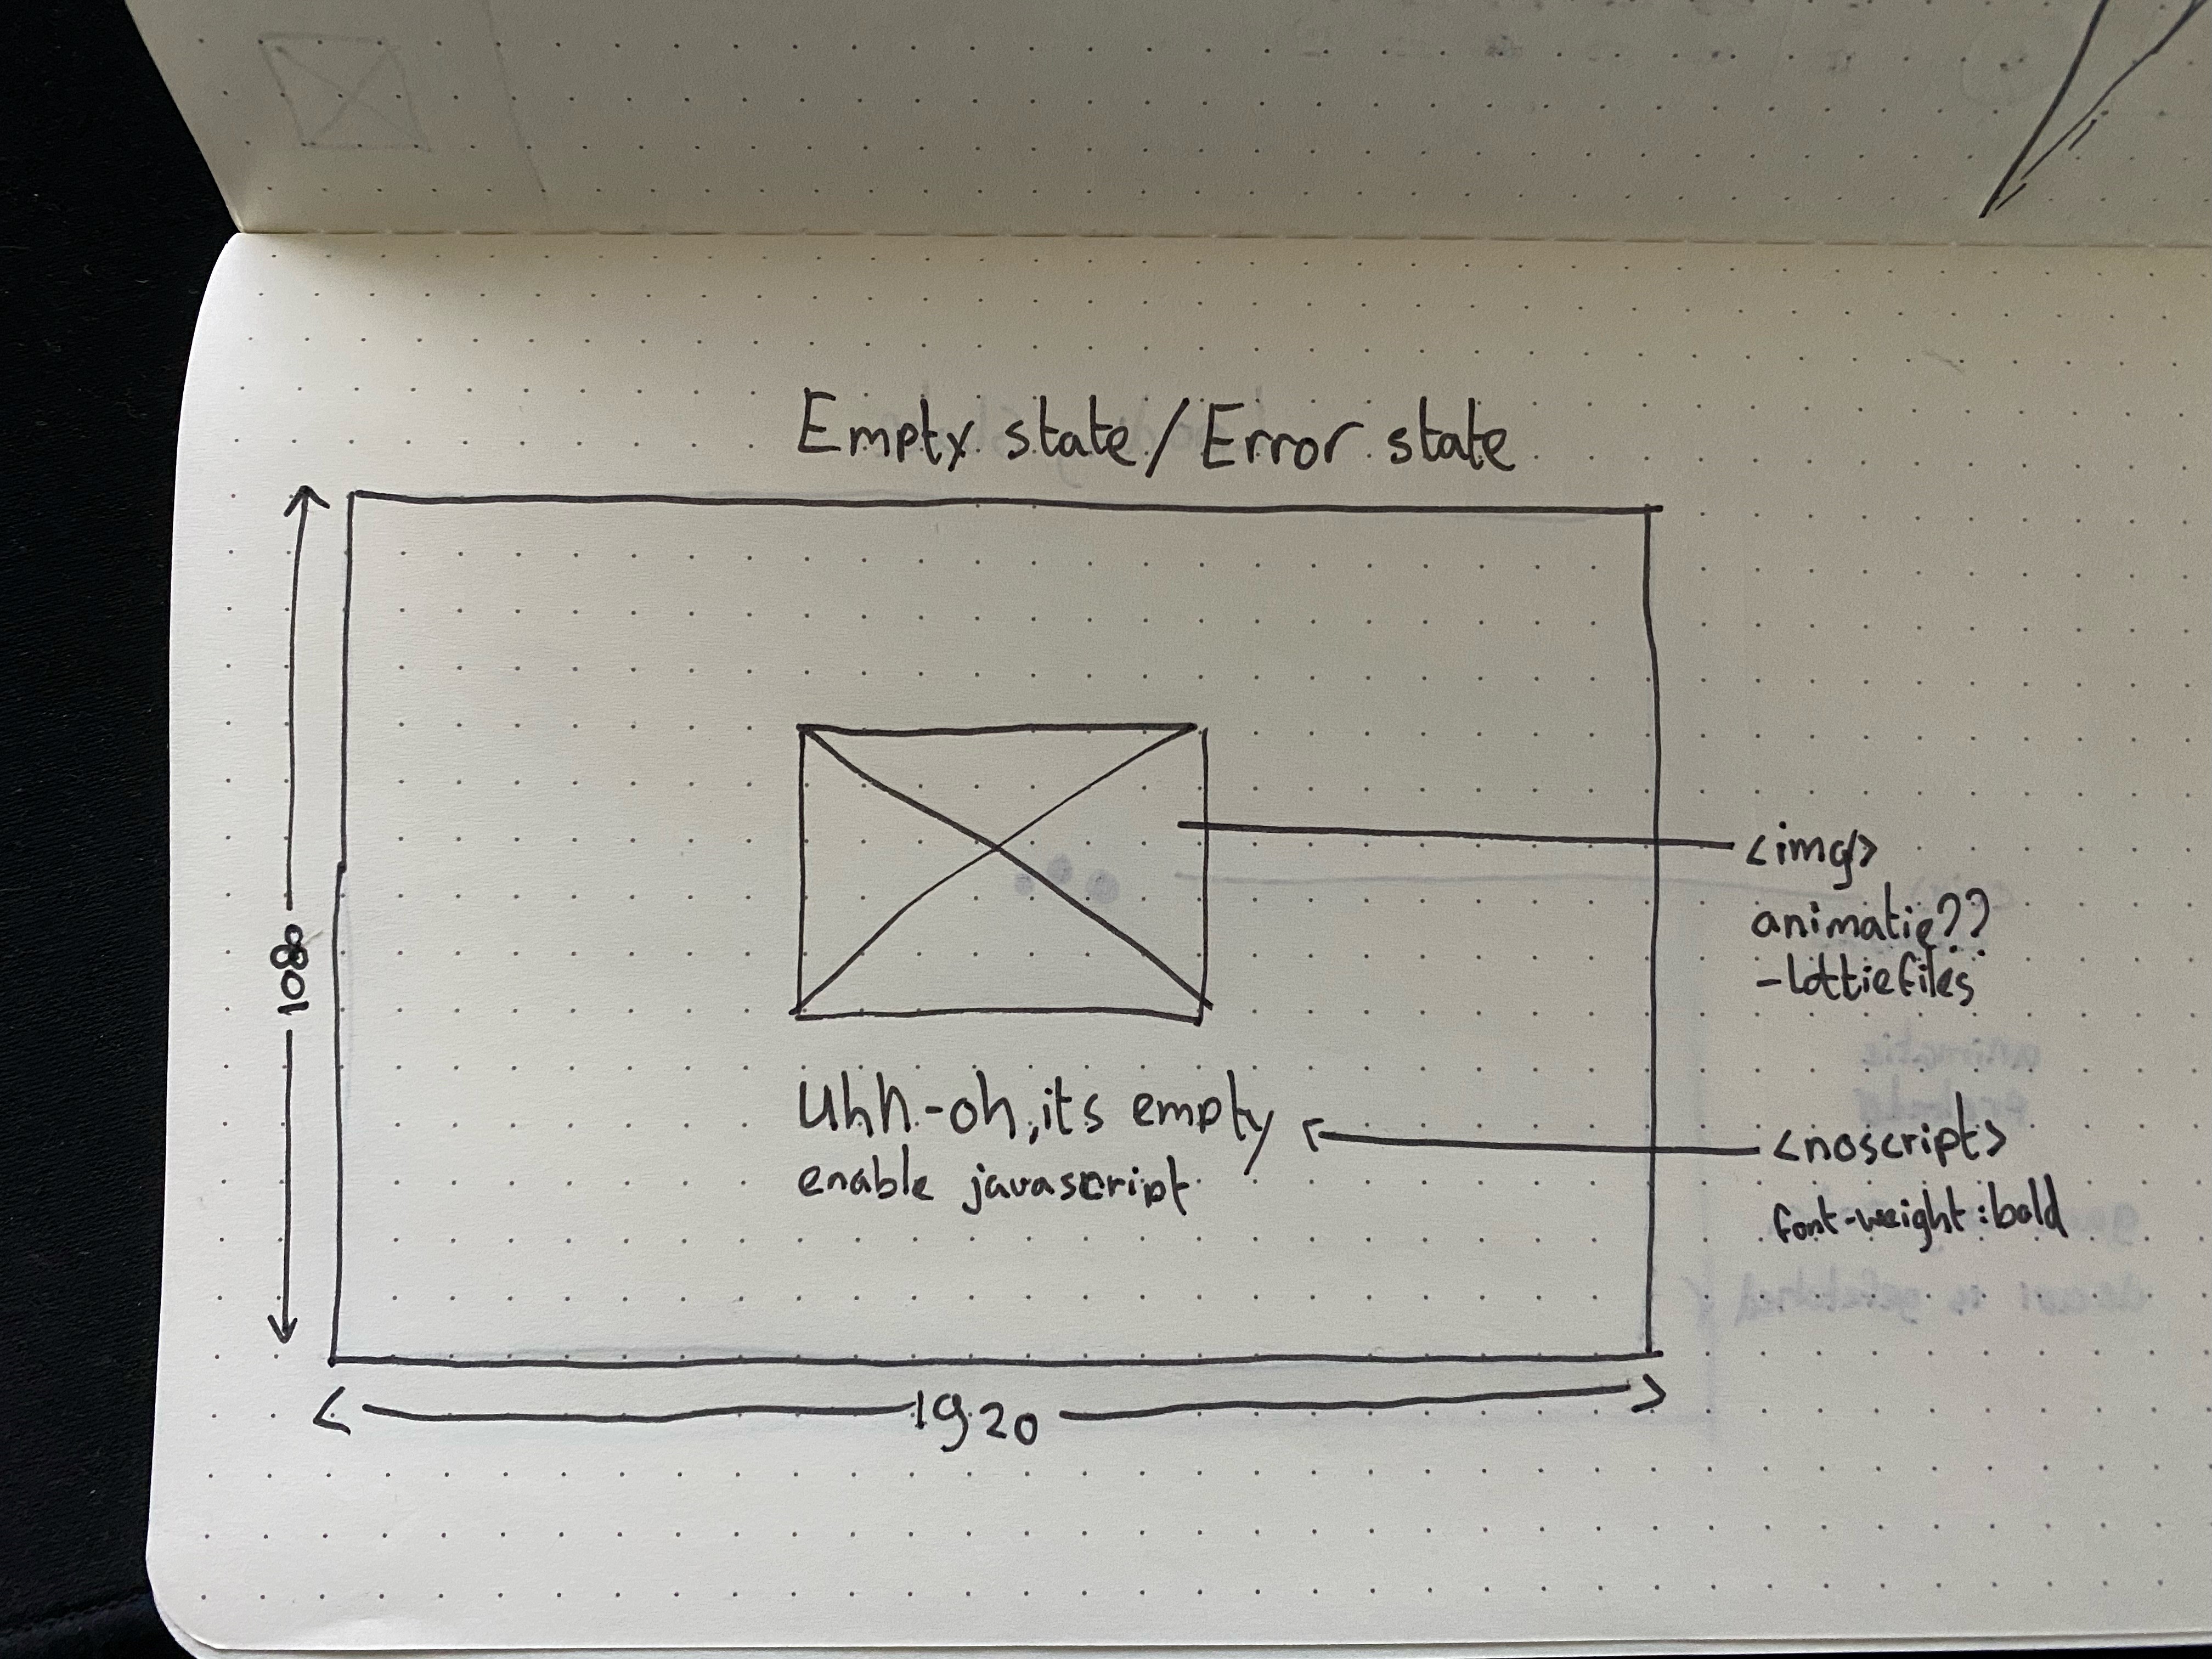 Empty state/Error state
1080
<img>
animatie??
-lottiefiles
Uhh-oh, its empty
enable javascript
<noscript>
font-weight:bold
1920